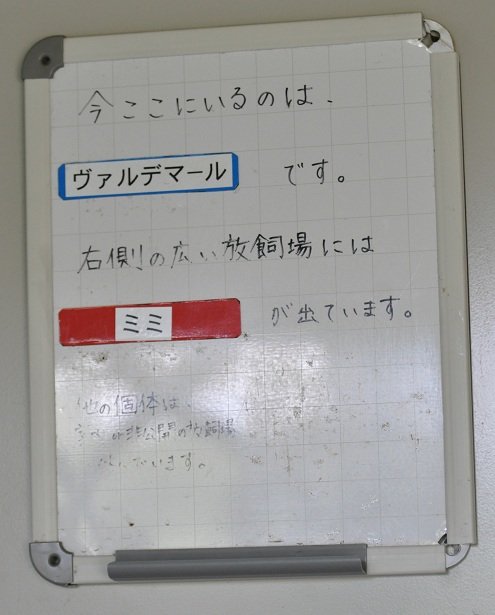 今ここにいるのは、
ヴァルデマール です。
右側の広い放飼場には
ミミ が出ています。
他の個体は、
の非公開の放飼場
います。